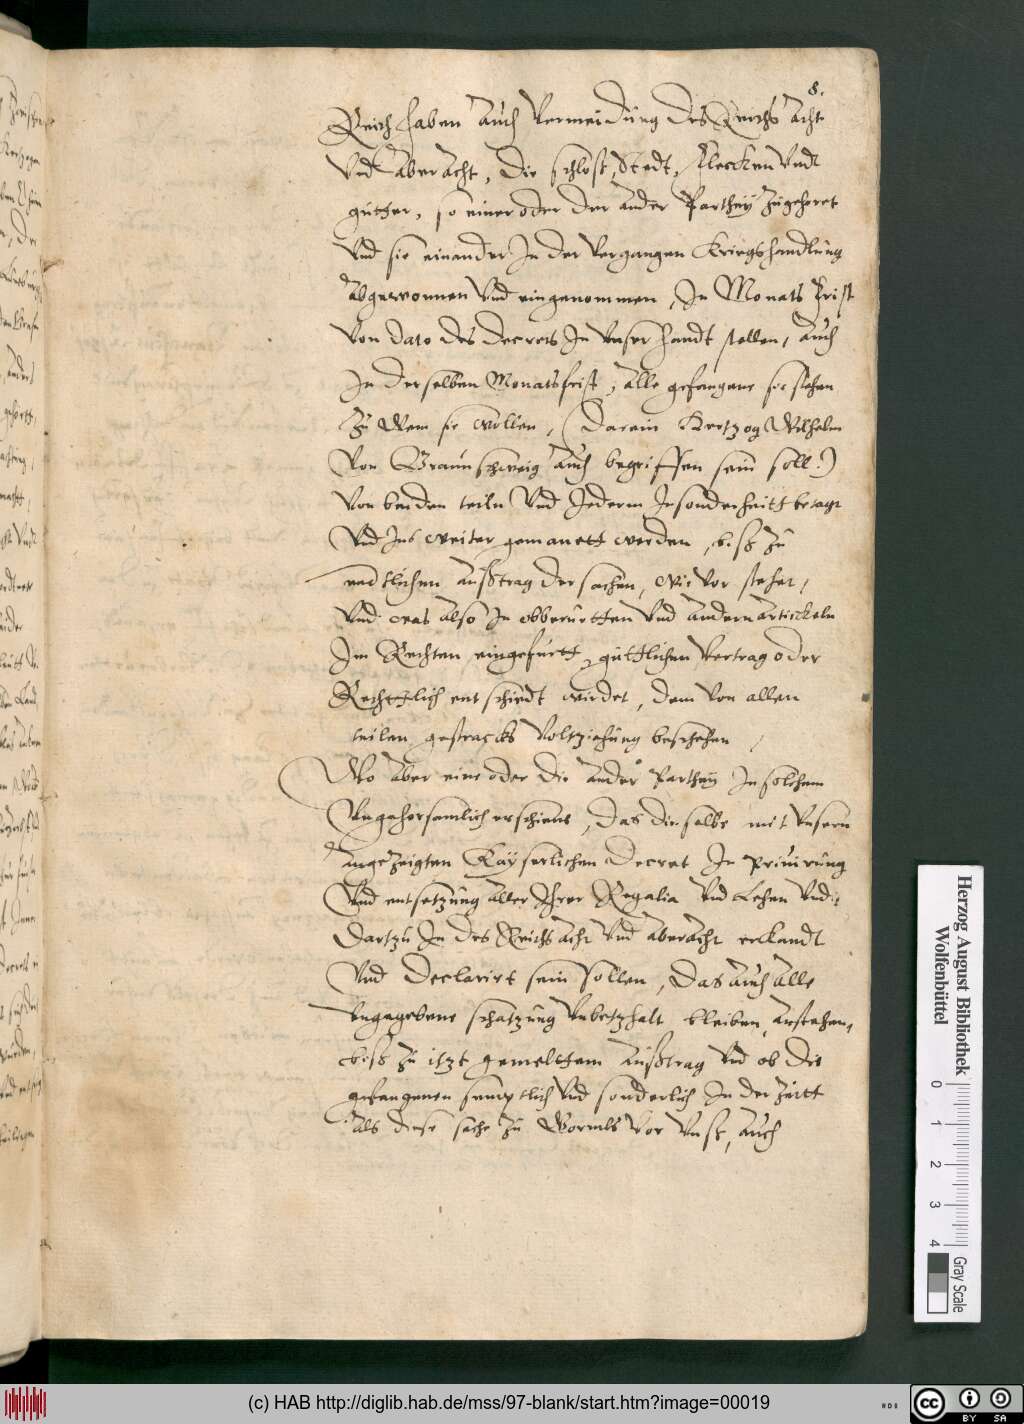 8.
Reich haben auch vermeidung des Reichs acht
vnd aberacht, die schloss, Stedt, Flecken vnd
gutter, so einer oder der ander Parthey zugehoret
vnd sie einander In der vergangen Kriegshandlung
abgewonnen vnd eingenommen, In Monats Frist
von dato des decrets In vnser handt stellen, auch
In derselben Monatsfrist, alle gefangene sie stehen
zu wem sie wollen, (Darein Hertzog Wilhelm
von Braunschweig auch begriffen sein soll:)
von beiden teiln vnd Jederm Insonderheitt betagt
vnd Ins weiter gemanett werden, biß zu
endtlichen außtrag der sachen, wie vor stehet,
vnd was also In obberurtten vnd andern artickeln
Im Rechten eingefurtt, guttlichen vertrag oder
Rechtlich entschiedt wirdet, dem von allen
teilen gestracks voltziehung beschehen,
Wo aber eine oder die ander Parthey In solchem
vngehorsamlich erschiene, das dieselbe mit vnserm
angezeigten Kayserlichen Decret In Priuirung
vnd entsetzung aller Ihrer Regalia vnd Lehen vnd
dartzu In des Reichs acht vnd aberacht erkandt
vnd Declarirt sein sollen, Das auch alle
vngegebene schatzung vnbetzhalt bleiben, anstehen,
biß zu itzt gemelttem außtrag vnd ob die
gefangenen semptlich vnd sonderlich In der zeitt
als diese sache zu Wormbs vor vnß, auch
Herzog August Bibliothek
Wolfenbüttel
0 1 2 3 4
Gray Scale
(c) HAB http://diglib.hab.de/mss/97-blank/start.htm?image=00019
cc BY SA